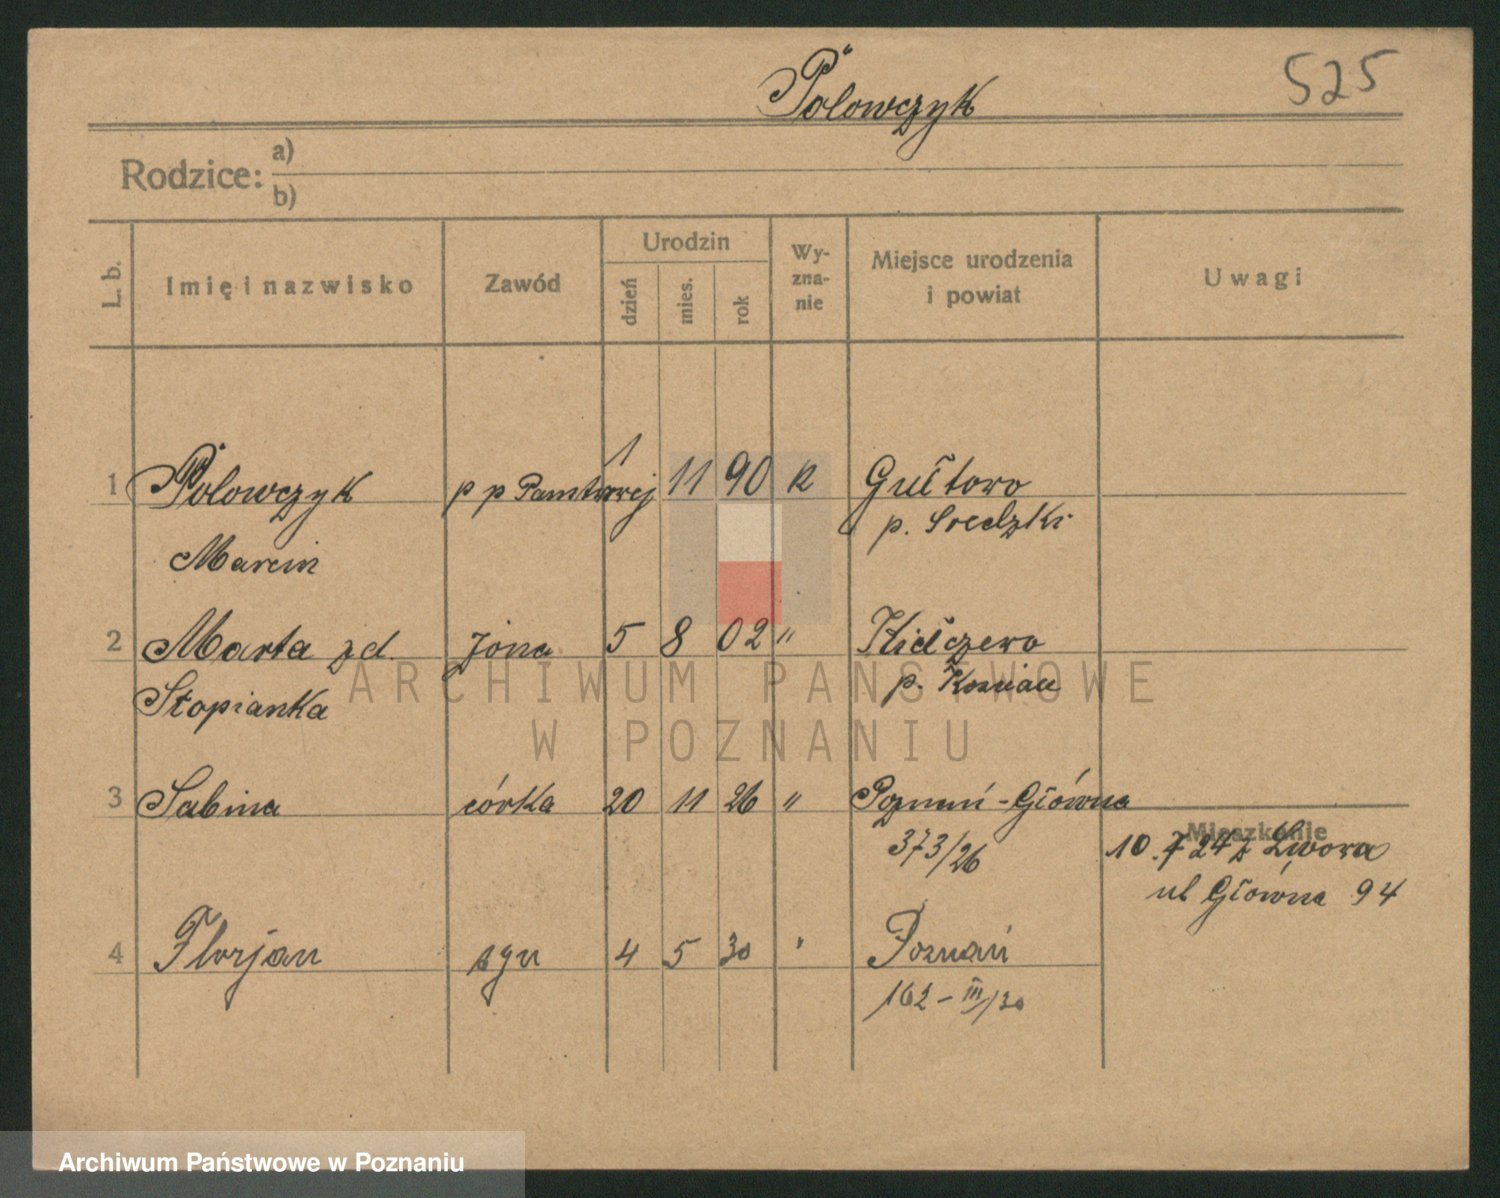 Połowczyk
525
Rodzice:
a)
b)
L. b.
Imię i nazwisko
Zawód
Urodzin
dzień
mies.
rok
Wy-
zna-
nie
Miejsce urodzenia
i powiat
Uwagi
1 Połowczyk p p 1 11 90 K Gułtowo
p. Sredzki
Marcin
2 Marta zd. żona 5 8 02 " Kiełczewo
p. Kościan
Stopianka
ARCHIWUM PAŃSTWOWE
W POZNANIU
3 Sabina córka 20 11 26 " Poznań-Główna
373/26
Mieszkanie
10.7 24 z Dwora
ul Główna 94
4 Florjan syn 4 5 30 " Poznań
162-III/30
Archiwum Państwowe w Poznaniu